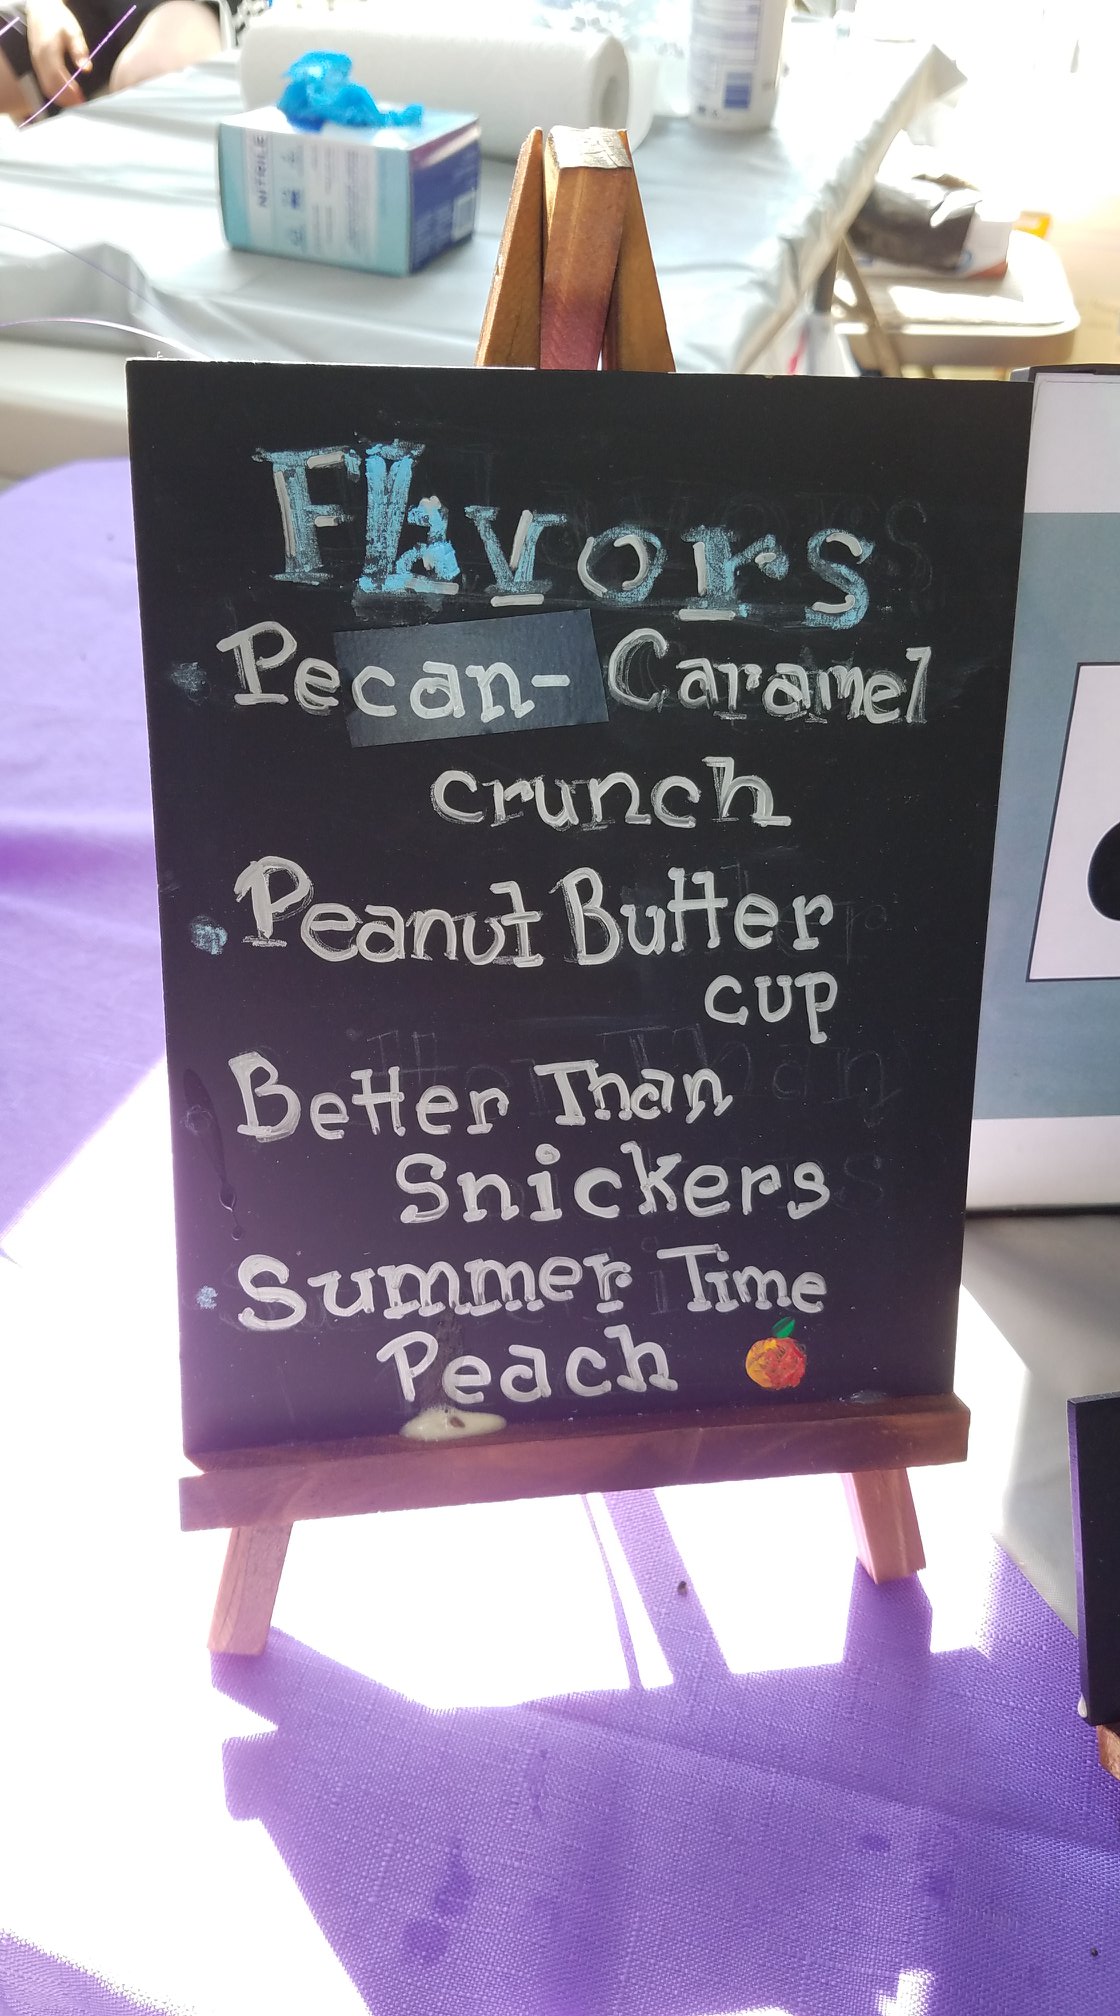 NITRILE
Flavors
Pecan- Caramel
crunch
Peanut Butter
cup
Better Than
Snickers
Summer Time
Peach